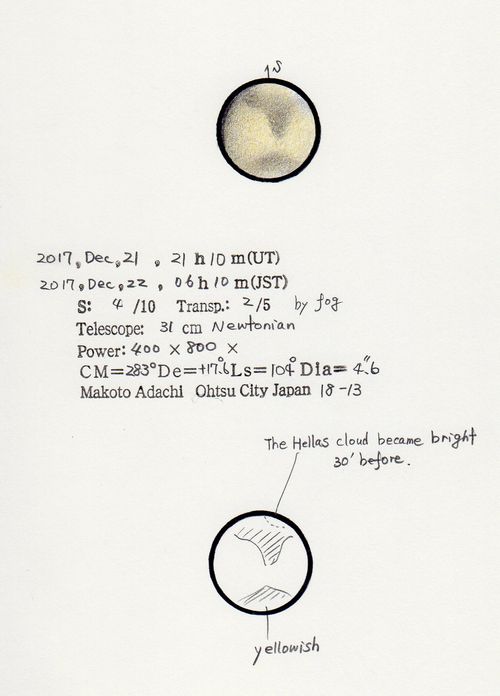 ↑S
2017, Dec, 21 , 21 h 10 m(UT)
2017, Dec, 22 , 06 h 10 m(JST)
S: 4 /10 Transp.: 2/5 by fog
Telescope: 31 cm Newtonian
Power: 400 × 800 ×
CM=283° De=+17.°6 Ls=104° Dia= 4.″6
Makoto Adachi Ohtsu City Japan 18-13
The Hellas cloud became bright
30' before.
yellowish